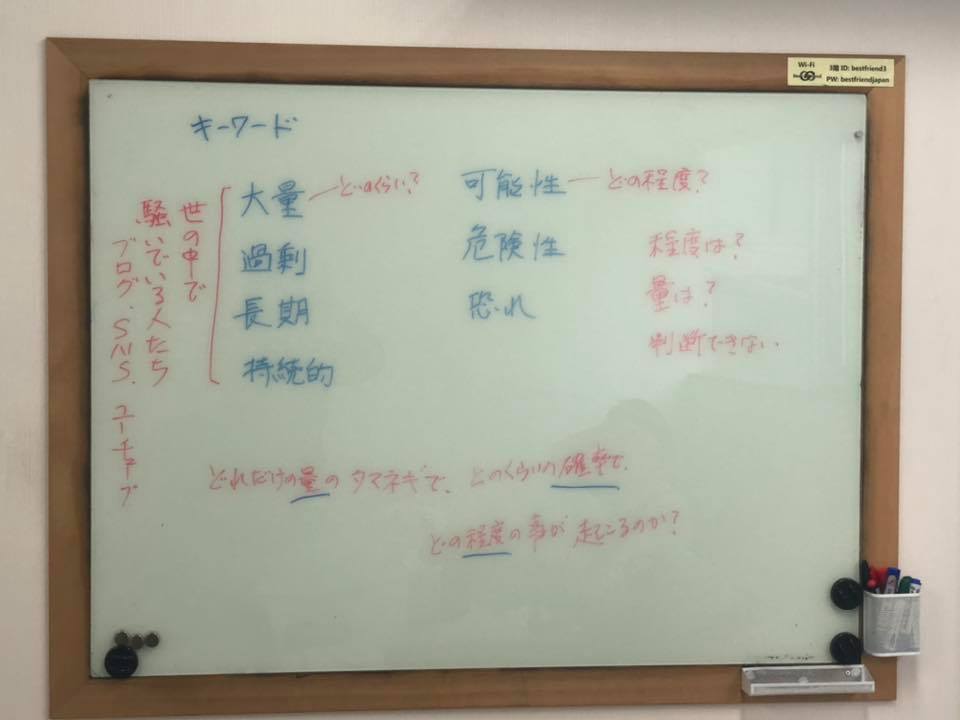 Wi-Fi
3階 ID: bestfriend3
PW: bestfriendjapan
キーワード
大量 ― どのくらい?
過剰
長期
持続的
世の中で
騒いでいる人たち
ブログ、SNS、ユーチューブ
可能性 ― どの程度?
危険性
恐れ
程度は?
量は?
判断できない
どれだけの量のタマネギで、どのくらいの確率で、
どの程度の事が起こるのか?